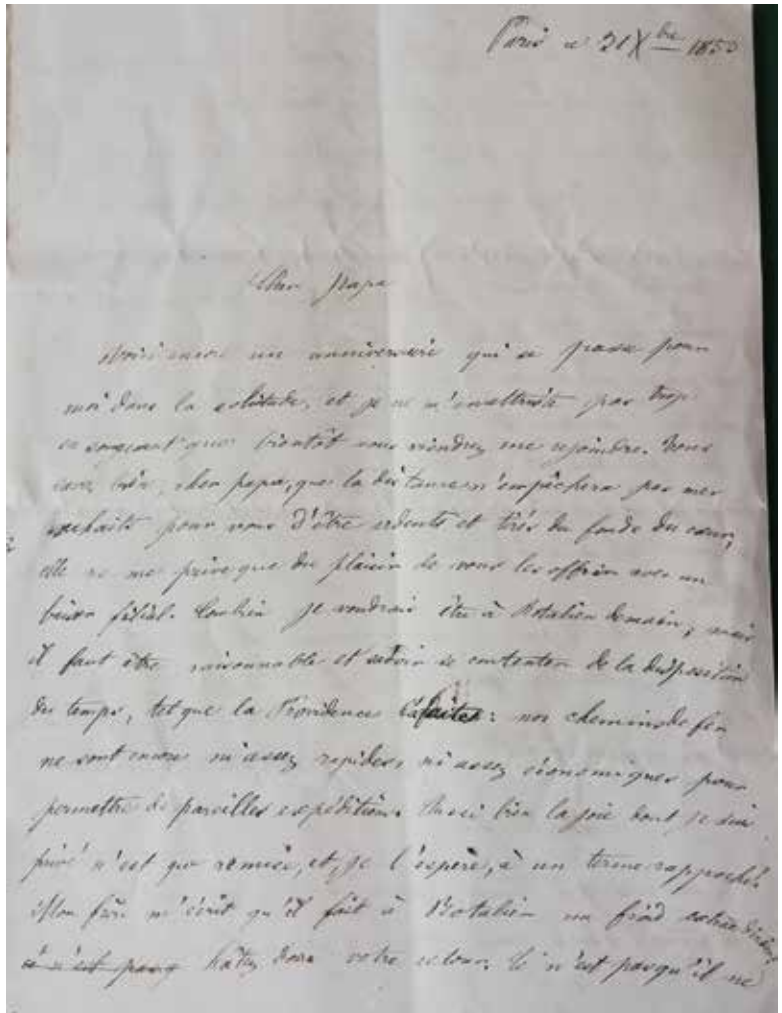 Paris ce 21 Xbre 1850
Cher papa
Voici encore un anniversaire qui se passe pour
moi dans la solitude, et je ne m'en attriste pas trop
en songeant que bientôt vous viendrez me rejoindre. Vous
savez bien, cher papa, que la distance n'empêchera pas mes
souhaits pour vous d'être ardents et tirés du fonds du cœur;
elle ne me prive que du plaisir de vous les offrir avec un
baiser filial. Combien je voudrais être à Rotalier demain; mais
il faut être raisonnable et savoir se contenter de la disposition
du temps, tel que la Providence l'a : nos chemins de fer
ne sont encore ni assez rapides, ni assez économiques pour
permettre de pareilles expéditions. Aussi bien la joie dont je suis
privé n'est que remise, et, je l'espère, à un terme rapproché.
Mon frère m'écrit qu'il fait à Rotalier un froid
ce n'est pas hâtez donc votre retour. Ce n'est pas qu'il ne